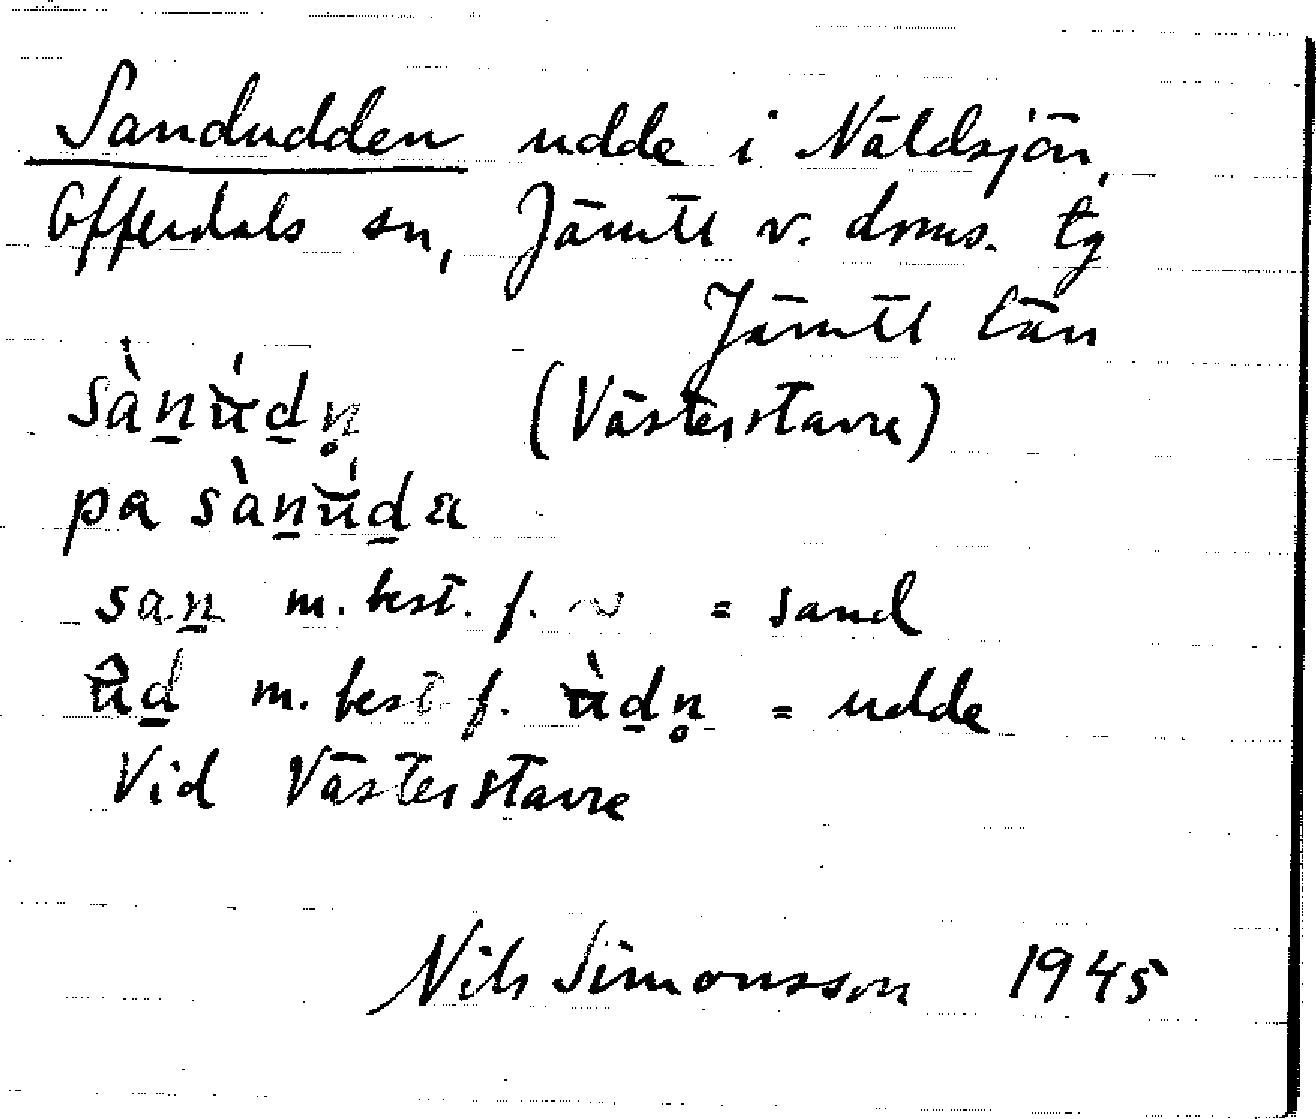 Sandudden udde i Näldsjön,
Offerdals sn, Jämtl v. doms. tg
Jämtl län
sànúdn̥ (Västerstavre)
pa sànúda
san m. best. f. ~ = sand
ûd m. best f. ùdn̥ = udde
Vid Västerstavre
Nils Simonsson 1945